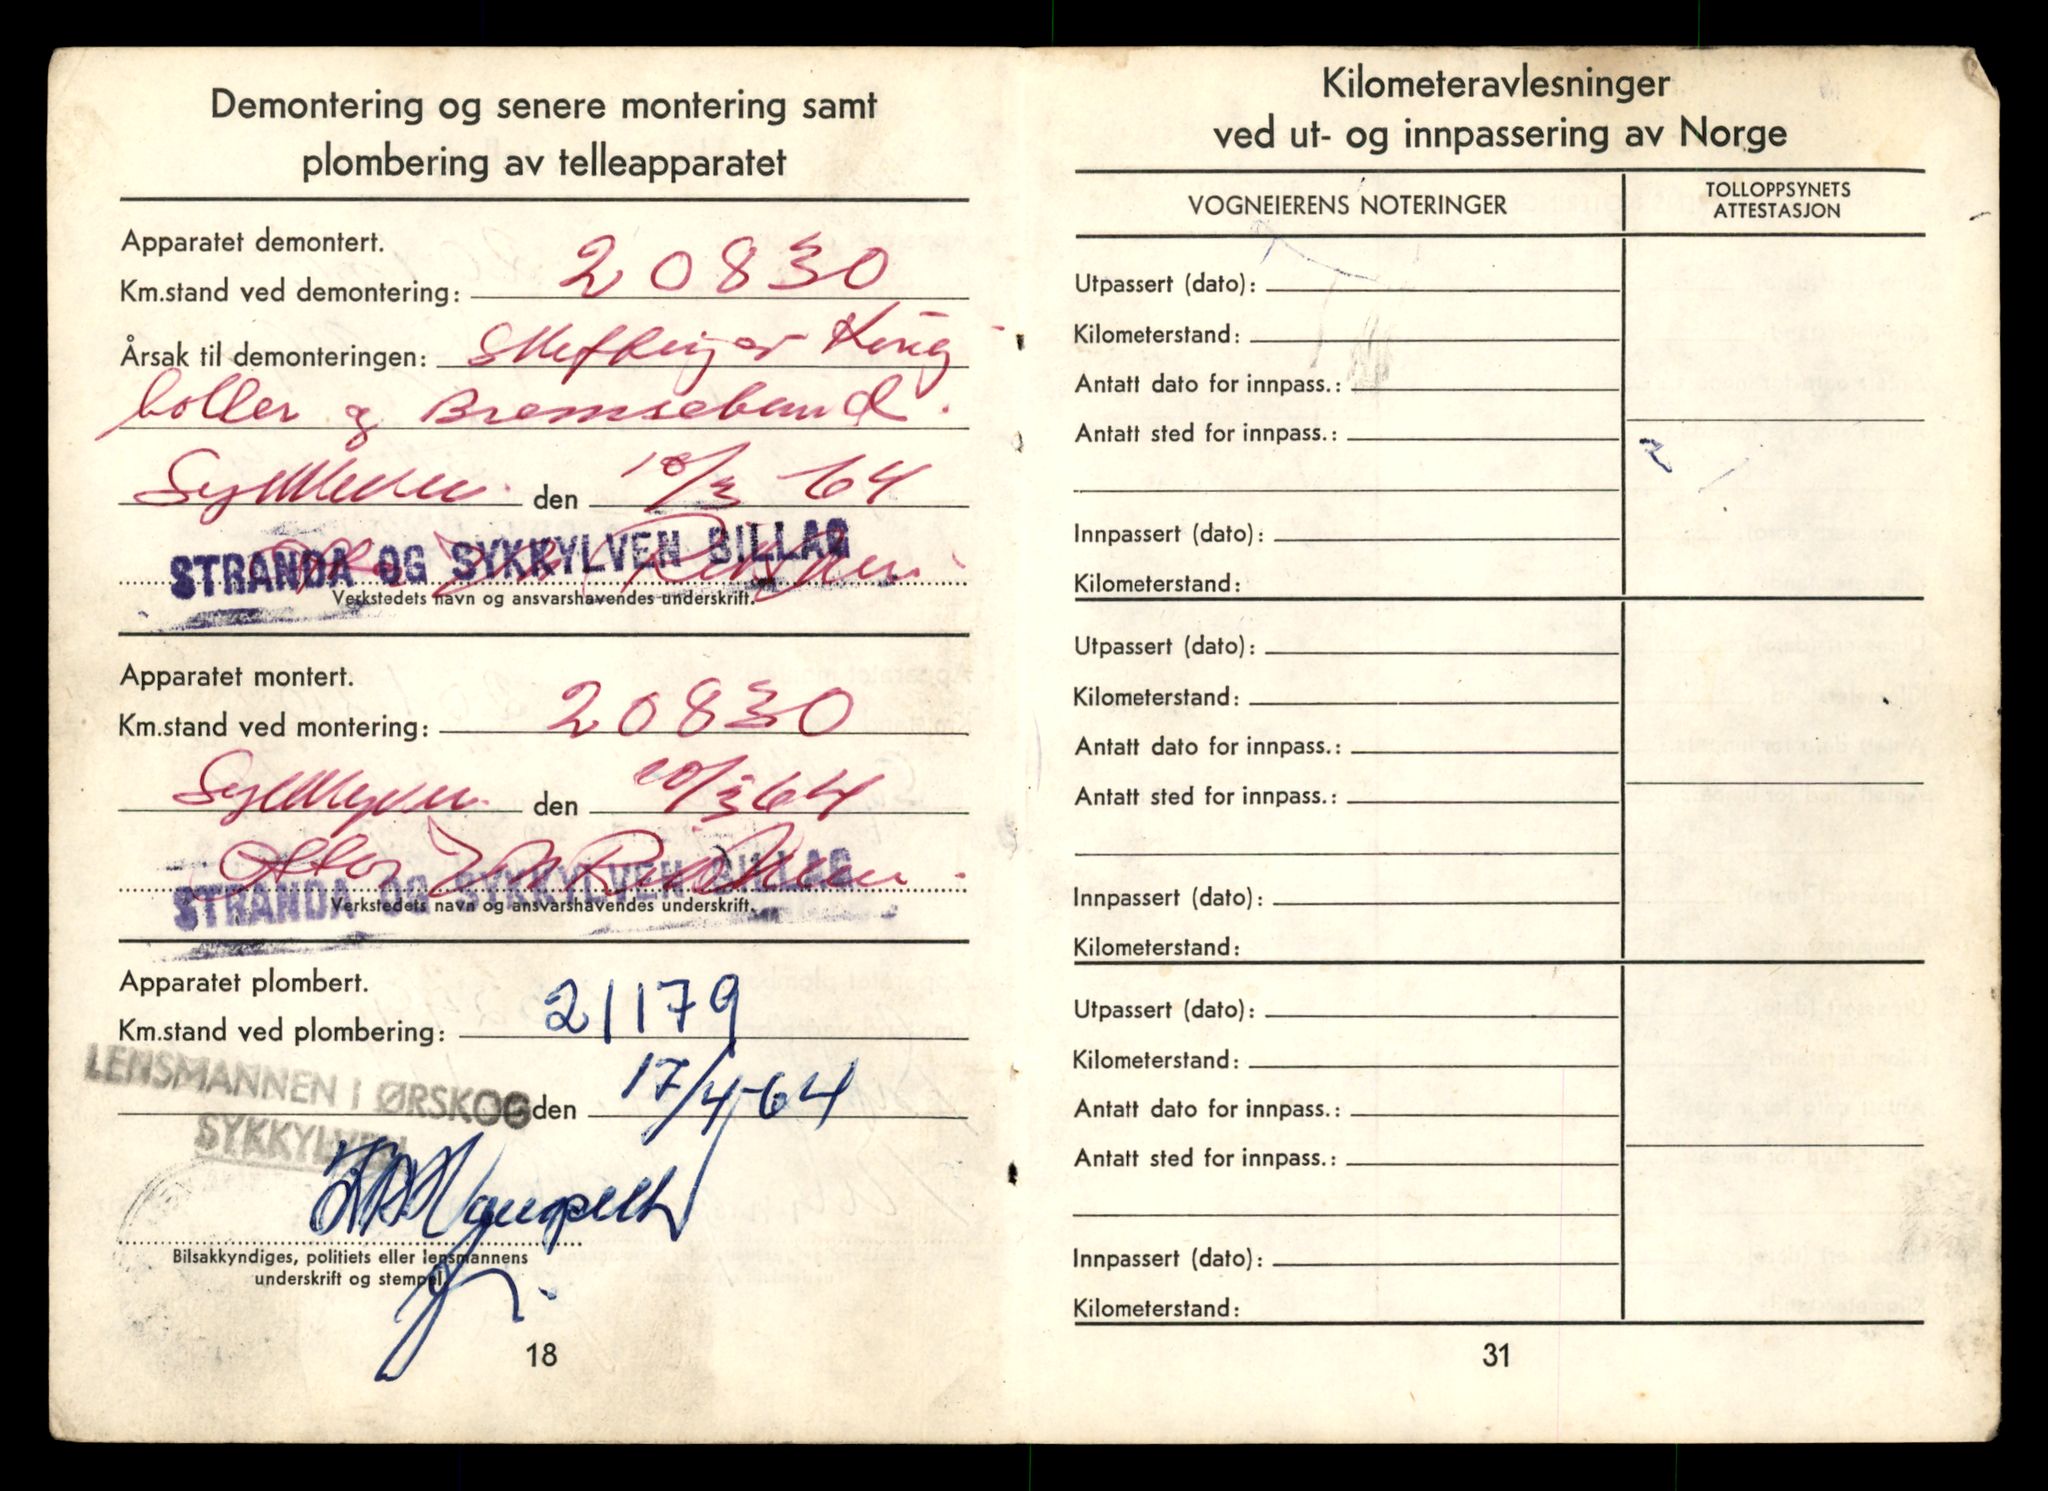 Demontering og senere montering samt
plombering av telleapparatet
Apparatet demontert.
Km.stand ved demontering: 20830
Årsak til demonteringen: King
boller og Bremseband.
den 10/3 64
STRANDA OG SYKKYLVEN BILLAG
Verkstedets navn og ansvarshavendes underskrift.
Apparatet montert.
Km.stand ved montering: 20830
den 20/3 64
STRANDA OG SYKKYLVEN BILLAG
Verkstedets navn og ansvarshavendes underskrift.
Apparatet plombert.
Km.stand ved plombering: 21179
LENSMANNEN I ØRSKOG den 17/4-64
SYKKYLVEN
Bilsakkyndiges, politiets eller lensmannens
underskrift og stempel.
18
Kilometeravlesninger
ved ut- og innpassering av Norge
VOGNEIERENS NOTERINGER
TOLLOPPSYNETS
ATTESTASJON
Utpassert (dato):
Kilometerstand:
Antatt dato for innpass.:
Antatt sted for innpass.:
Innpassert (dato):
Kilometerstand:
Utpassert (dato):
Kilometerstand:
Antatt dato for innpass.:
Antatt sted for innpass.:
Innpassert (dato):
Kilometerstand:
Utpassert (dato):
Kilometerstand:
Antatt dato for innpass.:
Antatt sted for innpass.:
Innpassert (dato):
Kilometerstand:
31